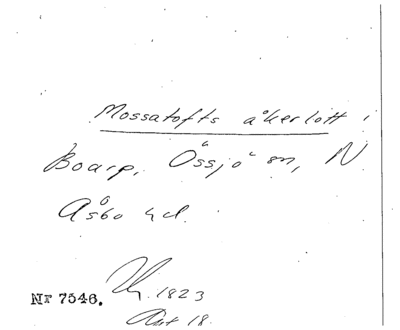 Mossatofts åkerlott i
Boarp, Össjö sn, N
Åsbo hd.
Nr 7546.
1823